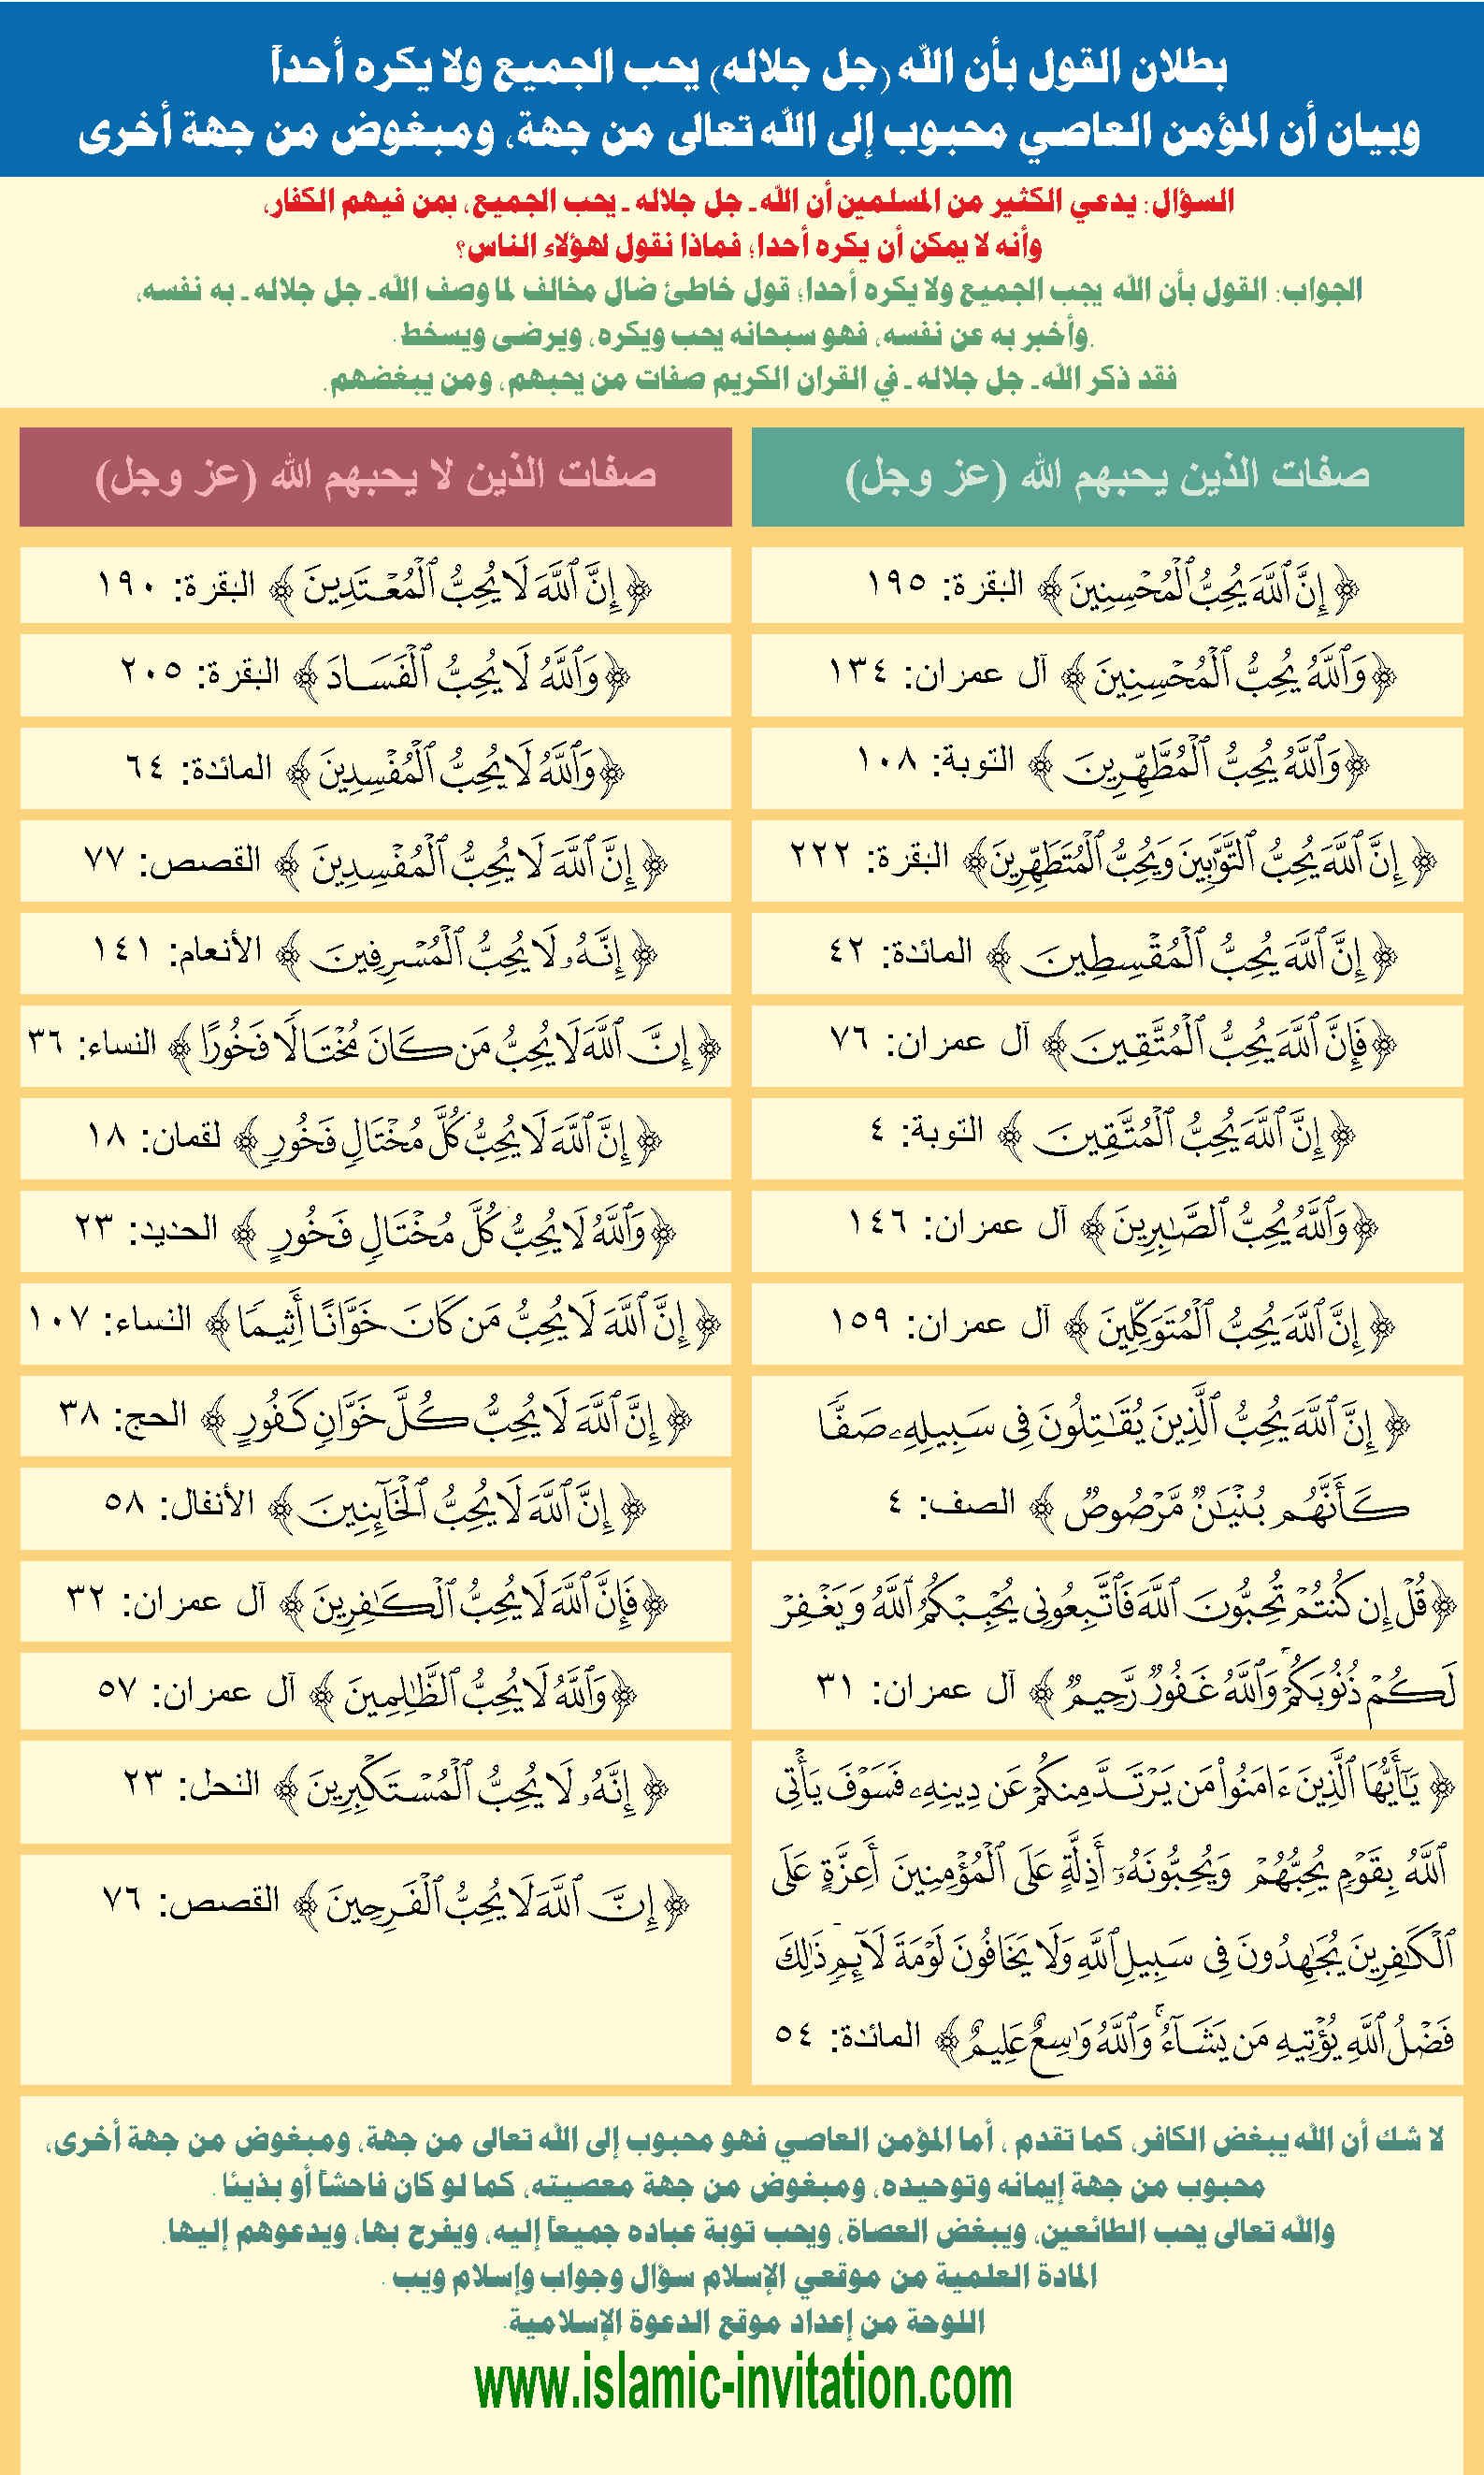 بطلان القول بأن الله (جل جلاله) يحب الجميع ولا يكره أحداً
وبيان أن المؤمن العاصي محبوب إلى الله تعالى من جهة، ومبغوض من جهة أخرى
السؤال: يدعي الكثير من المسلمين أن الله ـ جل جلاله ـ يحب الجميع، بمن فيهم الكفار،
وأنه لا يمكن أن يكره أحدا؛ فماذا نقول لهؤلاء الناس؟
الجواب: القول بأن الله يحب الجميع ولا يكره أحدا؛ قول خاطئ ضال مخالف لما وصف الله ـ جل جلاله ـ به نفسه،
وأخبر به عن نفسه، فهو سبحانه يحب ويكره، ويرضى ويسخط.
فقد ذكر الله ـ جل جلاله ـ في القران الكريم صفات من يحبهم، ومن يبغضهم.
صفات الذين يحبهم الله (عز وجل)
﴿ إِنَّ ٱللَّهَ يُحِبُّ ٱلْمُحْسِنِينَ ﴾ البقرة: ١٩٥
﴿ وَٱللَّهُ يُحِبُّ ٱلْمُحْسِنِينَ ﴾ آل عمران: ١٣٤
﴿ وَٱللَّهُ يُحِبُّ ٱلْمُطَّهِّرِينَ ﴾ التوبة: ١٠٨
﴿ إِنَّ ٱللَّهَ يُحِبُّ ٱلتَّوَّٰبِينَ وَيُحِبُّ ٱلْمُتَطَهِّرِينَ ﴾ البقرة: ٢٢٢
﴿ إِنَّ ٱللَّهَ يُحِبُّ ٱلْمُقْسِطِينَ ﴾ المائدة: ٤٢
﴿ فَإِنَّ ٱللَّهَ يُحِبُّ ٱلْمُتَّقِينَ ﴾ آل عمران: ٧٦
﴿ إِنَّ ٱللَّهَ يُحِبُّ ٱلْمُتَّقِينَ ﴾ التوبة: ٤
﴿ وَٱللَّهُ يُحِبُّ ٱلصَّٰبِرِينَ ﴾ آل عمران: ١٤٦
﴿ إِنَّ ٱللَّهَ يُحِبُّ ٱلْمُتَوَكِّلِينَ ﴾ آل عمران: ١٥٩
﴿ إِنَّ ٱللَّهَ يُحِبُّ ٱلَّذِينَ يُقَٰتِلُونَ فِى سَبِيلِهِۦ صَفًّا
كَأَنَّهُم بُنْيَٰنٌ مَّرْصُوصٌ ﴾ الصف: ٤
﴿ قُلْ إِن كُنتُمْ تُحِبُّونَ ٱللَّهَ فَٱتَّبِعُونِى يُحْبِبْكُمُ ٱللَّهُ وَيَغْفِرْ
لَكُمْ ذُنُوبَكُمْ ۗ وَٱللَّهُ غَفُورٌ رَّحِيمٌ ﴾ آل عمران: ٣١
﴿ يَٰٓأَيُّهَا ٱلَّذِينَ ءَامَنُوا۟ مَن يَرْتَدَّ مِنكُمْ عَن دِينِهِۦ فَسَوْفَ يَأْتِى
ٱللَّهُ بِقَوْمٍ يُحِبُّهُمْ وَيُحِبُّونَهُۥٓ أَذِلَّةٍ عَلَى ٱلْمُؤْمِنِينَ أَعِزَّةٍ عَلَى
ٱلْكَٰفِرِينَ يُجَٰهِدُونَ فِى سَبِيلِ ٱللَّهِ وَلَا يَخَافُونَ لَوْمَةَ لَآئِمٍ ۚ ذَٰلِكَ
فَضْلُ ٱللَّهِ يُؤْتِيهِ مَن يَشَآءُ ۚ وَٱللَّهُ وَٰسِعٌ عَلِيمٌ ﴾ المائدة: ٥٤
صفات الذين لا يحبهم الله (عز وجل)
﴿ إِنَّ ٱللَّهَ لَا يُحِبُّ ٱلْمُعْتَدِينَ ﴾ البقرة: ١٩٠
﴿ وَٱللَّهُ لَا يُحِبُّ ٱلْفَسَادَ ﴾ البقرة: ٢٠٥
﴿ وَٱللَّهُ لَا يُحِبُّ ٱلْمُفْسِدِينَ ﴾ المائدة: ٦٤
﴿ إِنَّ ٱللَّهَ لَا يُحِبُّ ٱلْمُفْسِدِينَ ﴾ القصص: ٧٧
﴿ إِنَّهُۥ لَا يُحِبُّ ٱلْمُسْرِفِينَ ﴾ الأنعام: ١٤١
﴿ إِنَّ ٱللَّهَ لَا يُحِبُّ مَن كَانَ مُخْتَالًا فَخُورًا ﴾ النساء: ٣٦
﴿ إِنَّ ٱللَّهَ لَا يُحِبُّ كُلَّ مُخْتَالٍ فَخُورٍ ﴾ لقمان: ١٨
﴿ وَٱللَّهُ لَا يُحِبُّ كُلَّ مُخْتَالٍ فَخُورٍ ﴾ الحديد: ٢٣
﴿ إِنَّ ٱللَّهَ لَا يُحِبُّ مَن كَانَ خَوَّانًا أَثِيمًا ﴾ النساء: ١٠٧
﴿ إِنَّ ٱللَّهَ لَا يُحِبُّ كُلَّ خَوَّانٍ كَفُورٍ ﴾ الحج: ٣٨
﴿ إِنَّ ٱللَّهَ لَا يُحِبُّ ٱلْخَآئِنِينَ ﴾ الأنفال: ٥٨
﴿ فَإِنَّ ٱللَّهَ لَا يُحِبُّ ٱلْكَٰفِرِينَ ﴾ آل عمران: ٣٢
﴿ وَٱللَّهُ لَا يُحِبُّ ٱلظَّٰلِمِينَ ﴾ آل عمران: ٥٧
﴿ إِنَّهُۥ لَا يُحِبُّ ٱلْمُسْتَكْبِرِينَ ﴾ النحل: ٢٣
﴿ إِنَّ ٱللَّهَ لَا يُحِبُّ ٱلْفَرِحِينَ ﴾ القصص: ٧٦
لا شك أن الله يبغض الكافر، كما تقدم ، أما المؤمن العاصي فهو محبوب إلى الله تعالى من جهة، ومبغوض من جهة أخرى،
محبوب من جهة إيمانه وتوحيده، ومبغوض من جهة معصيته، كما لو كان فاحشاً أو بذيئا .
والله تعالى يحب الطائعين، ويبغض العصاة، ويحب توبة عباده جميعاً إليه، ويفرح بها، ويدعوهم إليها.
المادة العلمية من موقعي الإسلام سؤال وجواب وإسلام ويب .
اللوحة من إعداد موقع الدعوة الإسلامية.
www.islamic-invitation.com